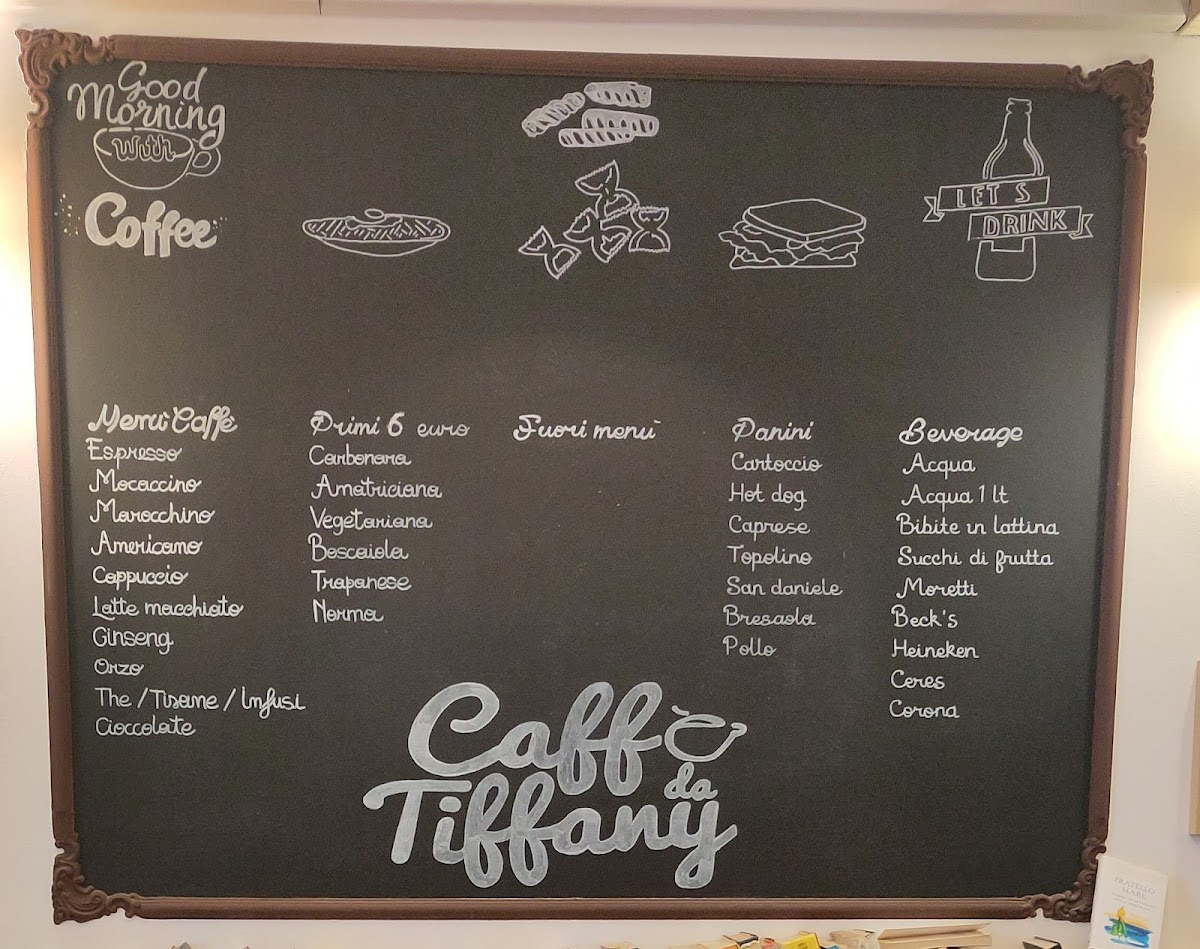 Good
Morning
with
Coffee
LET'S
DRINK
Menù Caffè
Espresso
Mocaccino
Marocchino
Americano
Cappuccio
Latte macchiato
Ginseng
Orzo
The / Tisane / Infusi
Cioccolate
Primi 6 euro
Carbonara
Amatriciana
Vegetariana
Boscaiola
Trapanese
Norma
Fuori menù
Panini
Cartoccio
Hot dog
Caprese
Topolino
San daniele
Bresaola
Pollo
Beverage
Acqua
Acqua 1 lt
Bibite in lattina
Succhi di frutta
Moretti
Beck's
Heineken
Ceres
Corona
Caffè
da
Tiffany
FRATELLO
MARE